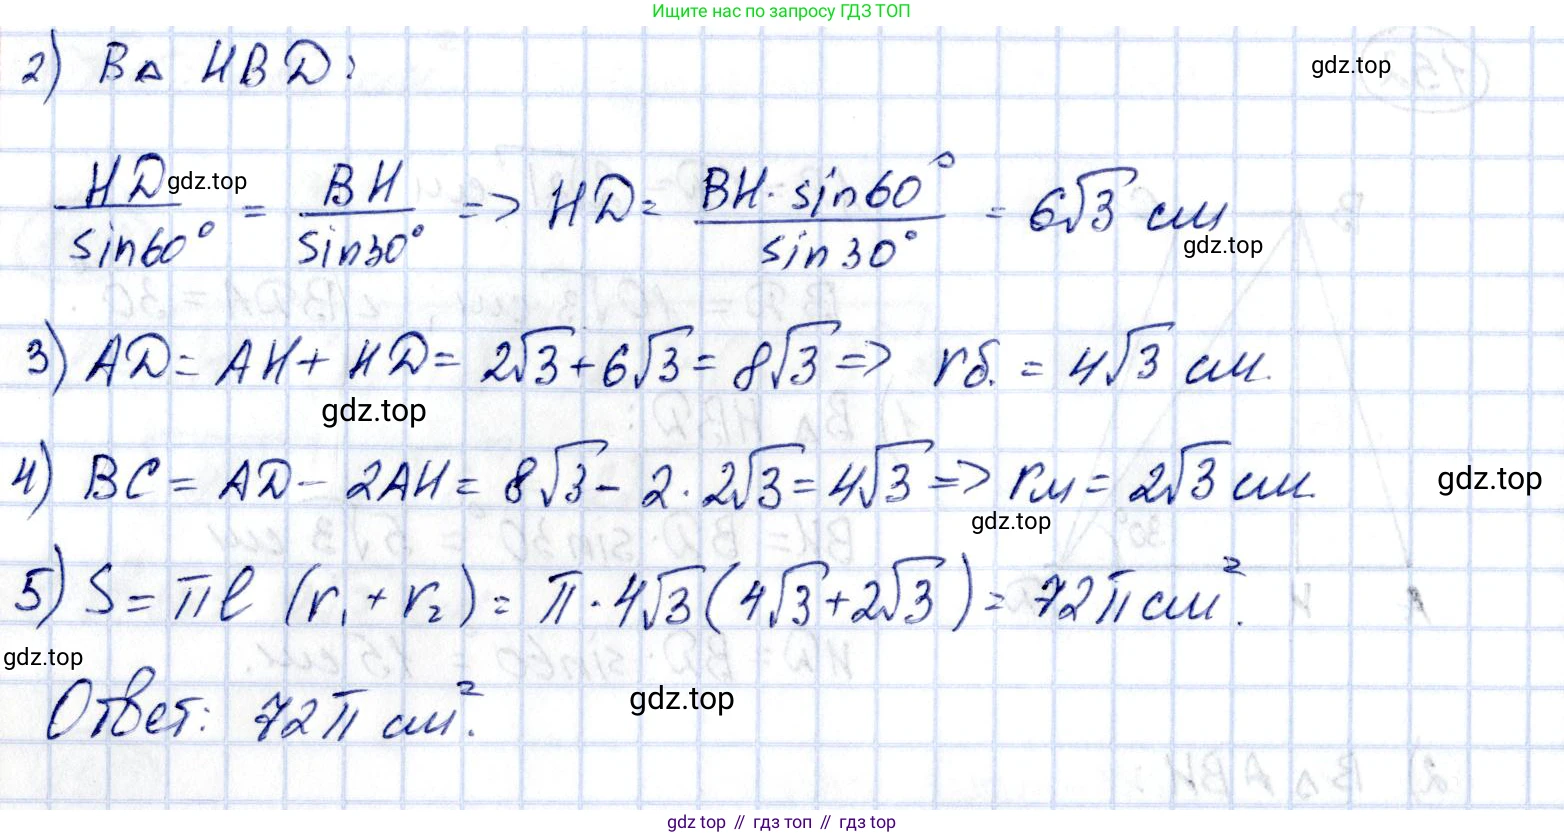 Ищите нас по запросу ГДЗ ТОП
2) В △ HBD:
gdz.top
HD/sin60° = BH/sin30° => HD = BH·sin60°/sin30° = 6√3 см
gdz.top
gdz.top
3) AD = AH + HD = 2√3 + 6√3 = 8√3 => rб. = 4√3 см.
gdz.top
4) BC = AD - 2AH = 8√3 - 2·2√3 = 4√3 => rм = 2√3 см.
gdz.top
gdz.top
5) S = πl (r₁ + r₂) = π·4√3 (4√3 + 2√3) = 72π см².
gdz.top
Ответ: 72π см².
gdz.top
gdz top // гдз топ // гдз top